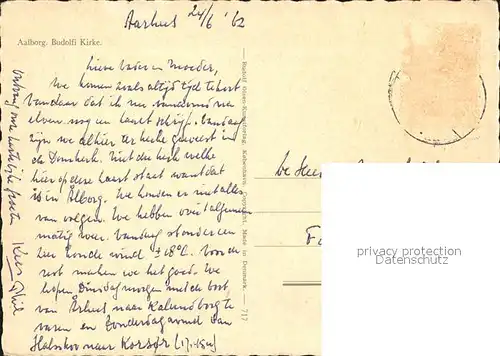 Aarhus 24/6 '62
Aalborg. Budolfi Kirke.
Lieve Vader en Moeder,
We komen zoals altijd tijd tekort
Vandaar dat ik nu vanavond na
elven nog een kaart schrijf. Vandaag
zijn we alhier ter kerke geweest in
de Domkerk. Niet de kerk welke
hier op deze kaart staat want dat
is in Ålborg. We konden er niet alles
van volgen. We hebben over 't algemeen
matig weer. Vandaag stond er een
zeer koude wind ± 18°C. Voor de
rest maken we het goed. We
hopen Dinsdagmorgen met de boot
van Århus naar Kalundborg te
varen en Donderdagavond van
Halsskov naar Korsør
Ontvang onze hartelijke groeten
Kees
— Rudolf Olsen-Kunstforlag, København. Copyright. Made in Denmark. — 717
De Heer
privacy protection
Datenschutz